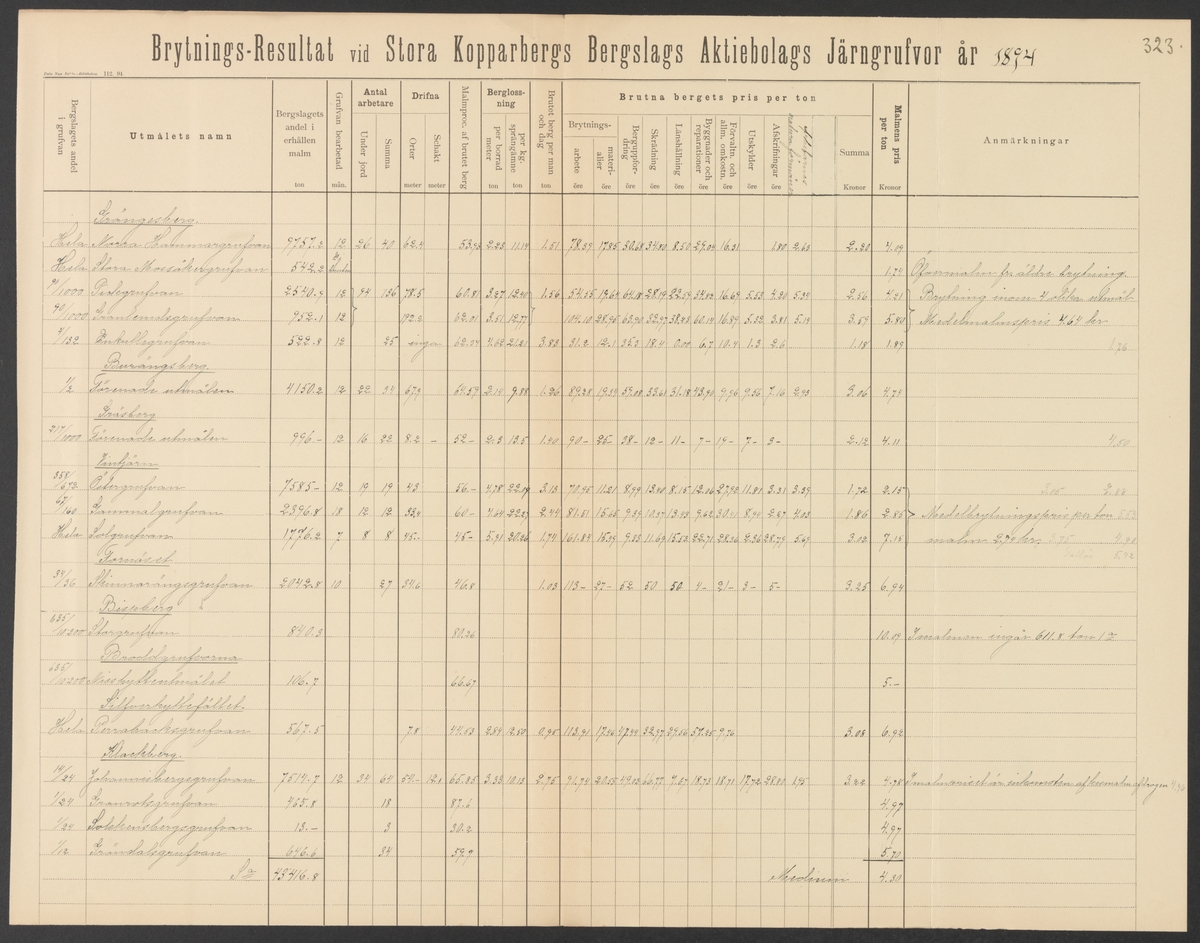 323.
Brytnings-Resultat vid Stora Kopparbergs Bergslags Aktiebolags Järngrufvor år 1894
Bergslagets andel i grufvan
Utmålets namn
Bergslagets andel i erhållen malm
ton
Grufvan bearbetad
mån.
Antal arbetare
Under jord
Summa
Drifna
Orter
meter
Schakt
meter
Malmproc. af brutet berg
Berglossning
per borrad meter
ton
per kg. sprängämne
ton
Brutet berg per man och dag
ton
Brutna bergets pris per ton
Brytnings-
arbete
öre
materialier
öre
Berguppfordring
öre
Skrädning
öre
Länshållning
öre
Byggnader och reparationer
öre
Förvaltn. och allm. omkostn.
öre
Utskylder
öre
Afskrifningar
öre
Summa
Kronor
Malmens pris per ton
Kronor
Anmärkningar
Grängesberg.
Hela Norra Hammargrufvan 9757.2 12 26 40 62.4 53.93 2.23 11.14 1.51 78.39 17.85 30.68 34.80 8.50 27.09 16.21 1.80 2.60 2.20 4.09
Hela Stora Mossåkergrufvan 542.2 1.74 Öfvermalm fr. äldre brytning.
/1000 Risbergrufvan 2540.9 12 94 136 78.5 60.81 3.27 12.90 1.56 54.55 13.64 64.18 28.19 22.54 34.83 16.64 5.53 4.20 5.39 2.56 4.21 Brytning inom 4 olika utmål
90/1000 952.1 12 192.2 62.01 3.51 12.77 104.10 28.95 63.90 32.97 38.48 60.14 16.89 5.32 3.81 5.14 3.59 5.80 Medelmalmspris 4.64 kr
/132 522.8 12 25 inga 62.24 4.52 21.21 3.83 31.2 12.1 32.3 18.4 0.00 6.7 10.4 1.3 2.6 1.18 1.89
1.76
Burängsberg.
1/2 Förenade utmålen 4150.2 12 22 34 67.9 64.59 2.14 9.88 1.26 89.28 19.39 59.08 33.61 31.18 43.90 9.96 9.56 7.16 2.93 3.06 4.74
Gräsberg
217/1000 Förenade utmålen 996.- 12 16 22 8.2 - 52- 2.3 12.5 1.20 90- 25- 38- 12- 11- 7- 19- 7- 3- 2.12 4.11
4.50
Vintjärn
358/672 Östergrufvan 7585- 12 19 19 43 56.- 4.78 22.09 3.13 70.95 11.21 8.99 13.80 8.15 12.06 27.92 11.81 3.31 3.39 1.72 3.15
67/160 Gammalgrufvan 2396.8 18 12 12 33.9 60- 4.64 22.27 2.44 81.51 15.65 9.39 10.37 13.93 9.62 30.41 8.94 2.87 4.03 1.86 2.85 Medelbrytningspris per ton
Hela Solgrufvan 1776.2 7 8 8 45.- 45- 5.91 20.26 1.74 161.89 15.15 9.83 11.67 15.53 22.71 28.16 2.36 28.79 5.67 3.02 7.15 malm 2.70 kr.
Tornäset
34/36 Skinnarängsgrufvan 2042.8 10 27 34.6 46.8 1.03 113- 27- 52 50 50 4- 21- 3- 5- 3.25 6.94
Bispberg
635/10200 Storgrufvan 840.3 80.26 10.09 I malmen ingår 611.8 ton 1a
Brovoldgrufvorna
635/10200 106.7 66.67 5.-
Silfverhyttefältet.
Hela Perrabacksgrufvan 567.5 7.8 44.53 2.54 12.50 0.95 113.91 17.86 47.94 32.97 34.56 57.25 9.76 3.08 6.92
Klackberg.
14/24 Johannesbergsgrufvan 7514.7 12 34 64 50.- 12.1 65.85 3.33 10.13 2.75 91.74 20.52 49.03 66.77 7.87 18.73 18.71 17.72 28.80 1.85 3.22 4.78 I malmpriset är inkomsten af kismalm afdragen
1/24 Granrotsgrufvan 465.8 18 87.6 4.97
1/24 13.- 3 30.2 4.97
1/12 Gröndalsgrufvan 646.6 34 59.9 5.70
Sa 43416.8 Medium 4.30